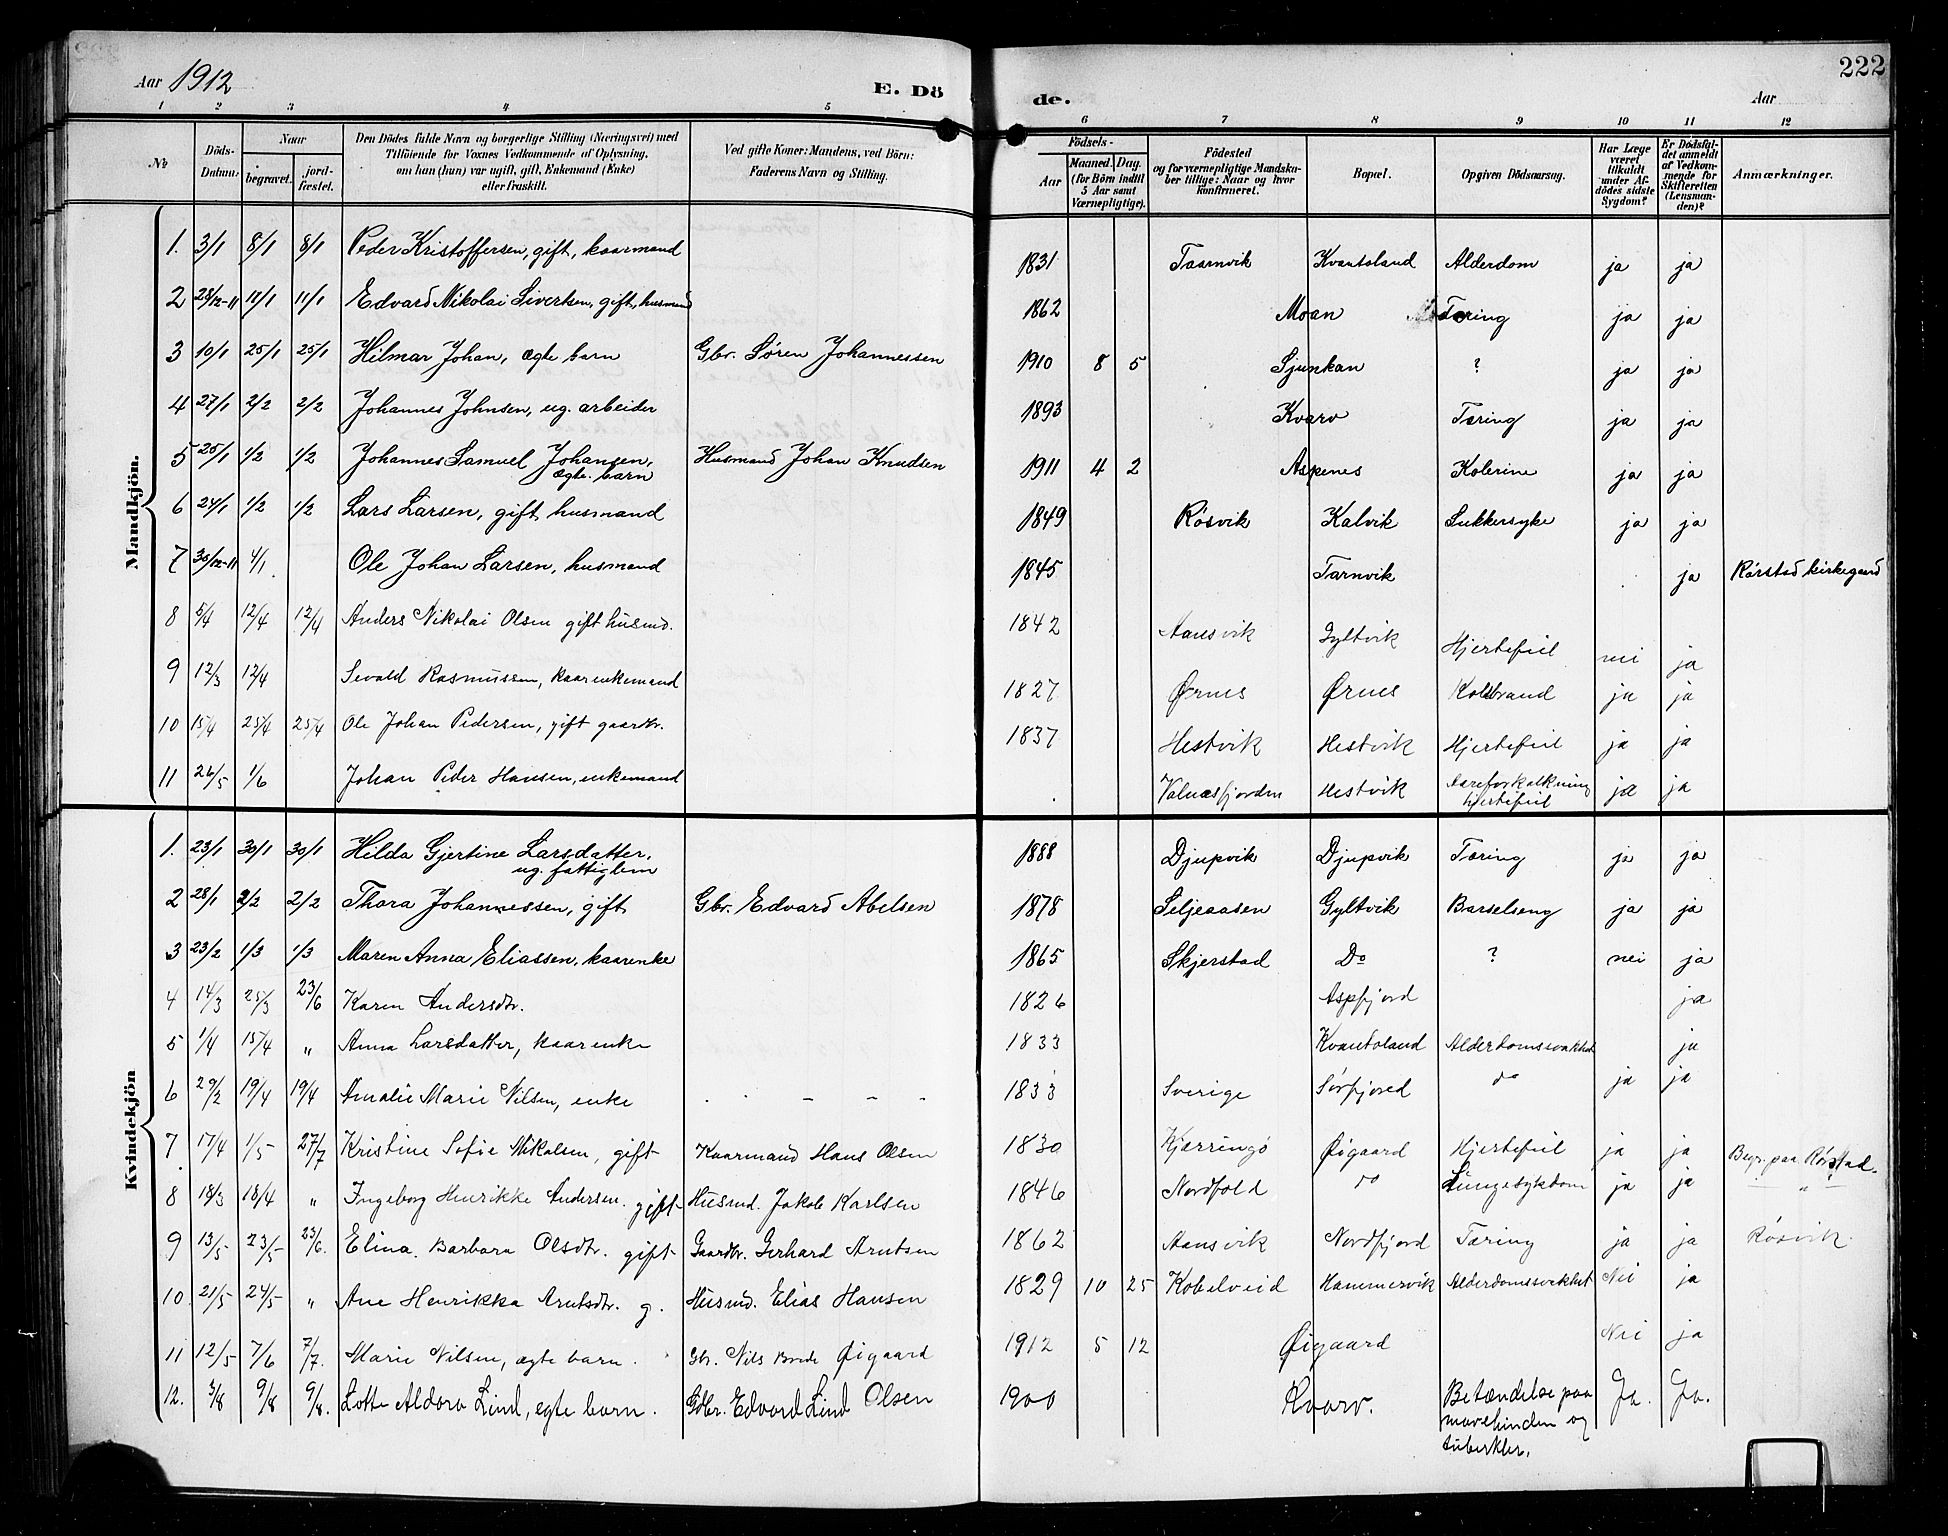 Aar 1912
E. Dö
de.
Aar
222
1 2 3 4 5 6 7 8 9 10 11 12
No
Döds-Datum.
Naar
begravet.
jord-fæstet.
Den Dödes fulde Navn og borgerlige Stilling (Næringsvei) med
Tilföiende for Voxnes Vedkommende af Oplysning,
om han (hun) var ugift, gift, Enkemand (Enke)
eller fraskilt.
Ved gifte Koner: Mandens, ved Börn:
Faderens Navn og Stilling.
Födsels-
Aar
Maaned. Dag.
(for Börn indtil
5 Aar samt
Værnepligtige).
Födested
og for værnepligtige Mandska-
ber tillige: Naar og hvor
konfirmeret.
Bopæl.
Opgiven Dödsaarsag.
Har Læge
været
tilkaldt
under Af-
dödes sidste
Sygdom?
Er Dödsfal-
det anmeldt
af Vedkom-
mende for
Skifteretten
(Lensman-
den)?
Anmærkninger.
Mandkjön.
1. 3/1 8/1 8/1 Peder Kristoffersen, gift, kaarmand 1831 Taarnvik Kvantoland Alderdom ja ja
2 28/12-11 11/1 11/1 Edvard Nikolai Sivertsen, gift, husmand 1862 Moan Tæring ja ja
3 10/1 25/1 25/1 Hilmar Johan, ægte barn Gbr. Søren Johannessen 1910 8 5 Sjunkan ? ja ja
4 27/1 2/2 2/2 Johannes Johnsen, ug. arbeider 1893 Kvarv Tæring ja ja
5 25/1 1/2 1/2 Johannes Samuel Johansen, ægte barn Husmand Johan Knudsen 1911 4 2 Aspenes Kolerine ja ja
6 24/1 1/2 1/2 Lars Larsen, gift, husmand 1849 Røsvik Kalvik Sukkersyke ja ja
7 30/12-11 4/1. Ole Johan Larsen, husmand 1845 Tarnvik ja Rørstad kirkegaard
8 5/4 12/4 12/4 Anders Nikolai Olsen gift husmd. 1842 Aansvik Gyltvik Hjertefeil nei ja
9 12/3 12/4 Sevald Rasmussen, kaarenkemand 1827 Ørnes Ørnes Koldbrand ja ja
10 15/4 25/4 25/4 Ole Johan Pedersen, gift gaardbr. 1837 Hestvik Hestvik Hjertefeil ja ja
11 26/5 1/6 Johan Peder Hansen, enkemand Valnesfjorden Hestvik Aareforkalkning Hjertefeil ja ja
Kvindekjön
1. 23/1 30/1 30/1 Hilda Gjertine Larsdatter, ug. fattiglem 1888 Djupvik Djupvik Tæring ja ja
2 28/1 2/2 2/2 Thora Johannessen, gift Gbr. Edvard Abelsen 1878 Seljeaasen Gyltvik Barselseng ja ja
3 23/2 1/3 1/3 Maren Anna Eliassen, kaarenke 1865 Skjerstad Do ? nei ja
4 14/3 25/3 23/6 Karen Andersdtr. 1826 Aspfjord ja
5 1/4 15/4 „ Anna Larsdatter, kaarenke 1833 Kvantoland Alderdomssvakhet ja
6 29/2 19/4 19/4 Amalie Marie Nilsen, enke . . – – – 1833 Sverige Sørfjored do ja ja
7 17/4 1/5 27/7 Kristine Sofie Nikolsen, gift Kaarmand Hans Olsen 1830 Kjerringö Øigaard Hjertefeil ja ja Begr. paa Rørstad.
8 18/3 18/4 „ Ingeborg Henrikke Andersen. gift Husmd. Jakob Karlsen 1846 Nordfold do Lungesykdom ja ja „
9 13/5 23/5 23/6. Elina Barbara Olsdtr. gift Gaardbr. Gerhard Arntsen 1862 Aansvik Nordfjord Tæring ja ja Røsvik.
10 21/5 24/5 „ Ane Henrikka Arntsdtr. g. Husmd. Elias Hansen 1829 10 25 Kobelveid Hammervik Alderdomssvakhet Nei ja
11 12/5 7/6 7/7. Marie Nilsen, ægte barn. Gbr. Nils Øigaard 1912 5 12 Øigaard Nei ja
12. 3/8 9/8 9/8. Lotte Aldora Lind, egte barn. Gdbr. Edvard Lind Olsen 1900 Kvarv. Betændelse paa mavehinden og tuberkler. Ja. Ja.